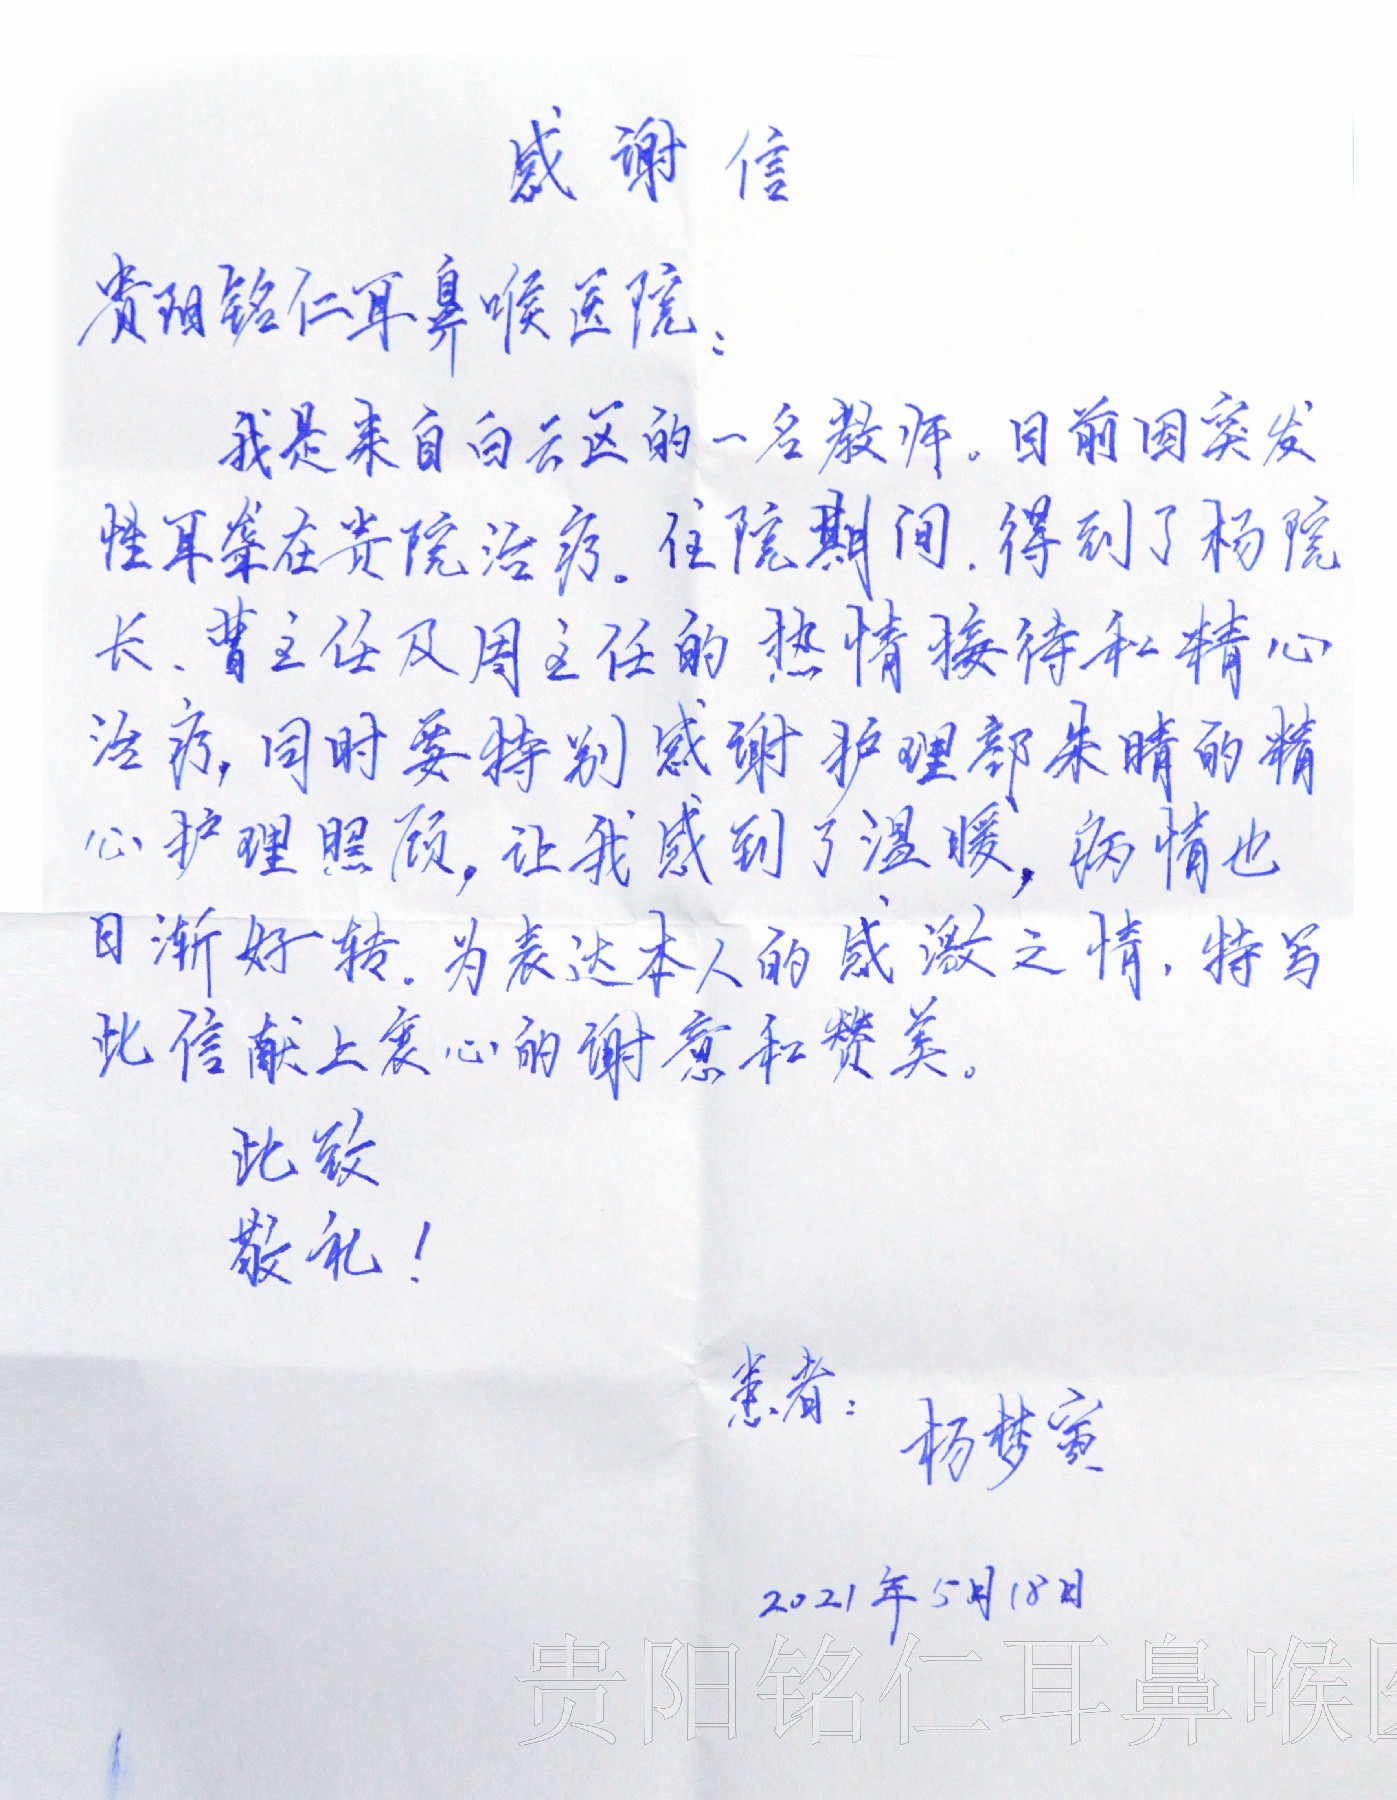 感谢信
贵阳铭仁耳鼻喉医院：
我是来自白云区的一名教师。目前因突发
性耳聋在贵院治疗。住院期间.得到了杨院
长、曹主任及周主任的热情接待和精心
治疗,同时要特别感谢护理部朱晴的精
心护理照顾,让我感到了温暖,病情也
日渐好转.为表达本人的感激之情,特写
此信献上衷心的谢意和赞美。
此致
敬礼！
患者：杨梦寅
2021年5月18日
贵阳铭仁耳鼻喉医